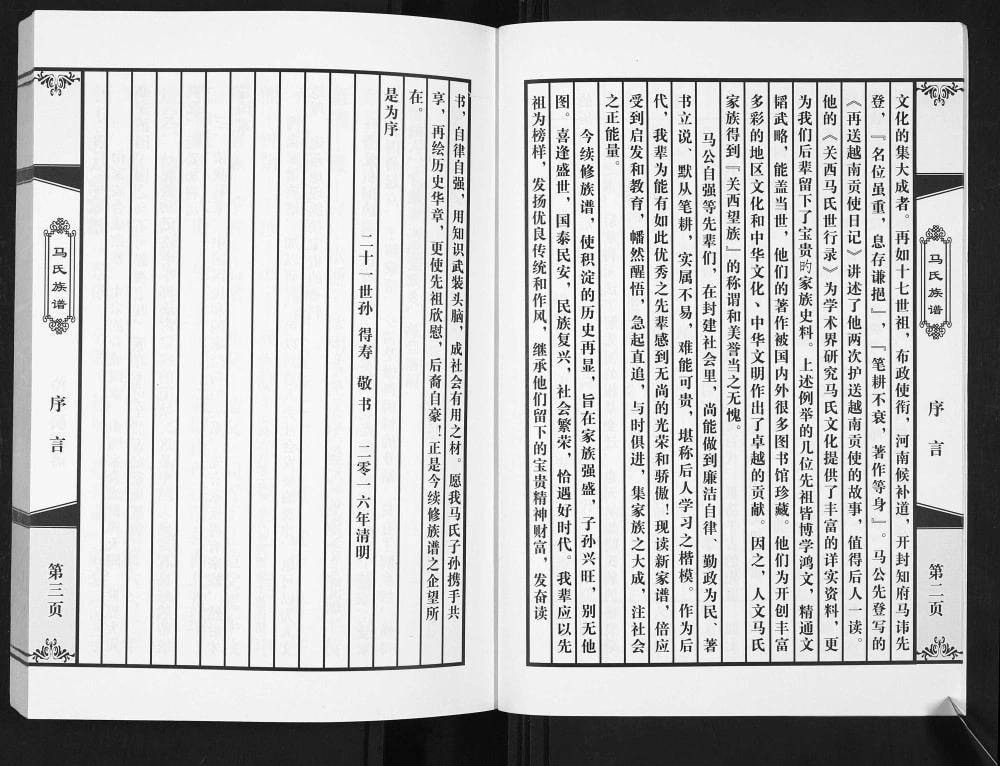 马氏族谱
序言
第二页
文化的集大成者。再如十七世祖，布政使衔，河南候补道，开封知府马讳先
登，『名位虽重，息存谦挹』，『笔耕不衰，著作等身』。马公先登写的
《再送越南贡使日记》讲述了他两次护送越南贡使的故事，值得后人一读。
他的《关西马氏世行录》为学术界研究马氏文化提供了丰富的详实资料，更
为我们后辈留下了宝贵的家族史料。上述例举的几位先祖皆博学鸿文，精通文
韬武略，能盖当世，他们的著作被国内外很多图书馆珍藏。他们为开创丰富
多彩的地区文化和中华文化、中华文明作出了卓越的贡献。因之，人文马氏
家族得到『关西望族』的称谓和美誉当之无愧。
马公自强等先辈们，在封建社会里，尚能做到廉洁自律、勤政为民、著
书立说、默从笔耕，实属不易，难能可贵，堪称后人学习之楷模。作为后
代，我辈为能有如此优秀之先辈感到无尚的光荣和骄傲！现读新家谱，倍应
受到启发和教育，幡然醒悟，急起直追，与时俱进，集家族之大成，注社会
之正能量。
今续修族谱，使积淀的历史再显，旨在家族强盛，子孙兴旺，别无他
图。喜逢盛世，国泰民安，民族复兴，社会繁荣，恰遇好时代。我辈应以先
祖为榜样，发扬优良传统和作风，继承他们留下的宝贵精神财富，发奋读
书，自律自强，用知识武装头脑，成社会有用之材。愿我马氏子孙携手共
享，再绘历史华章，更使先祖欣慰，后裔自豪！正是今续修族谱之企望所
在。
是为序
二十一世孙 得寿 敬书 二零一六年清明
马氏族谱
序言
第三页